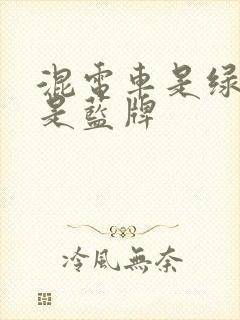 混電車是绿
是藍牌
冷風無奈